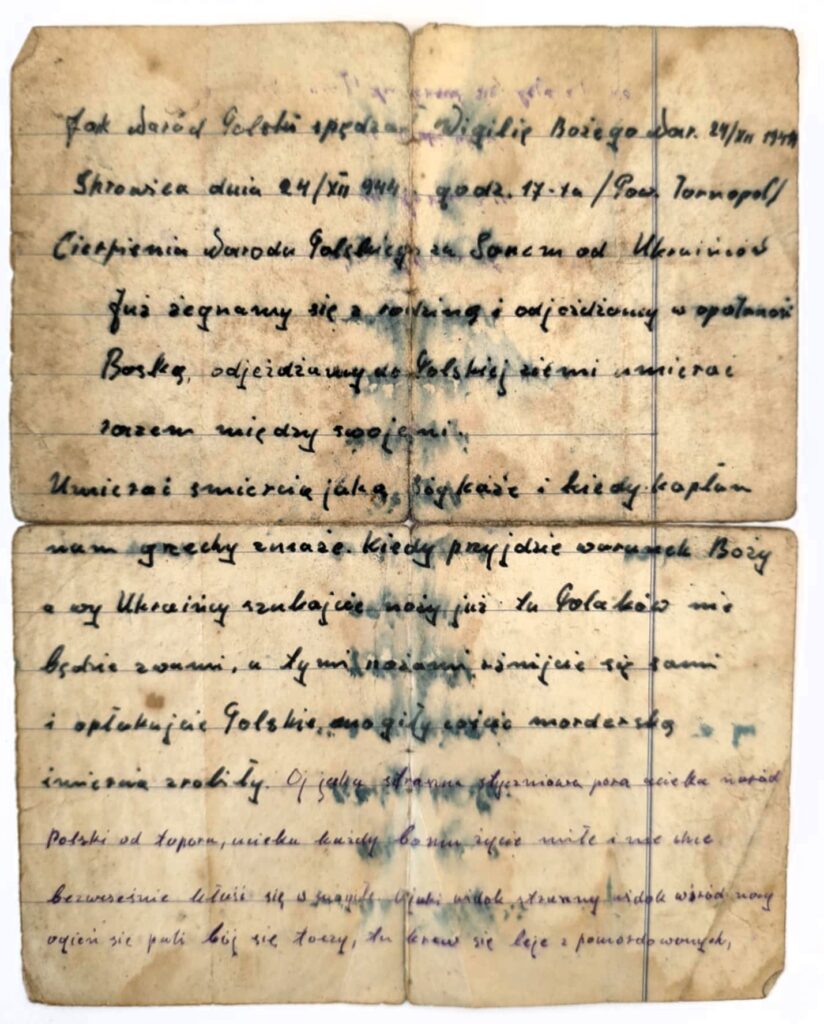 Jak Naród Polski spędzał Wigilię Bożego Nar. 24/XII 1944
dnia 24/XII 944 godz. 17-ta /Pow. Tarnopol/
Cierpienia Narodu Polskiego za Sanem od Ukraińców
Już żegnamy się z rodziną i odjeżdżamy w opatrność
Boską, odjeżdżamy do Polskiej ziemi umierać
razem między swojemi.
Umierać smiercią jaką Bóg każe i kiedy kapłan
nam grzechy zmaże. Kiedy przyjdzie warunek Boży
a wy Ukraińcy szukajcie noży już tu Polaków nie
będzie z wami, a tymi nożami rżnijcie się sami
i opłakujcie Polskie mogiły coście morderską
śmiercią zrobiły. Oj jaka straszna styczniowa pora ucieka naród
Polski od topora, ucieka każdy bo mu życie miłe i nie chce
bezwcześnie kłaść się w mogiłę Ojaki widok straszny widok wśród nocy
ogień się pali bój się toczy, tu krew się leje z pomordowanych,